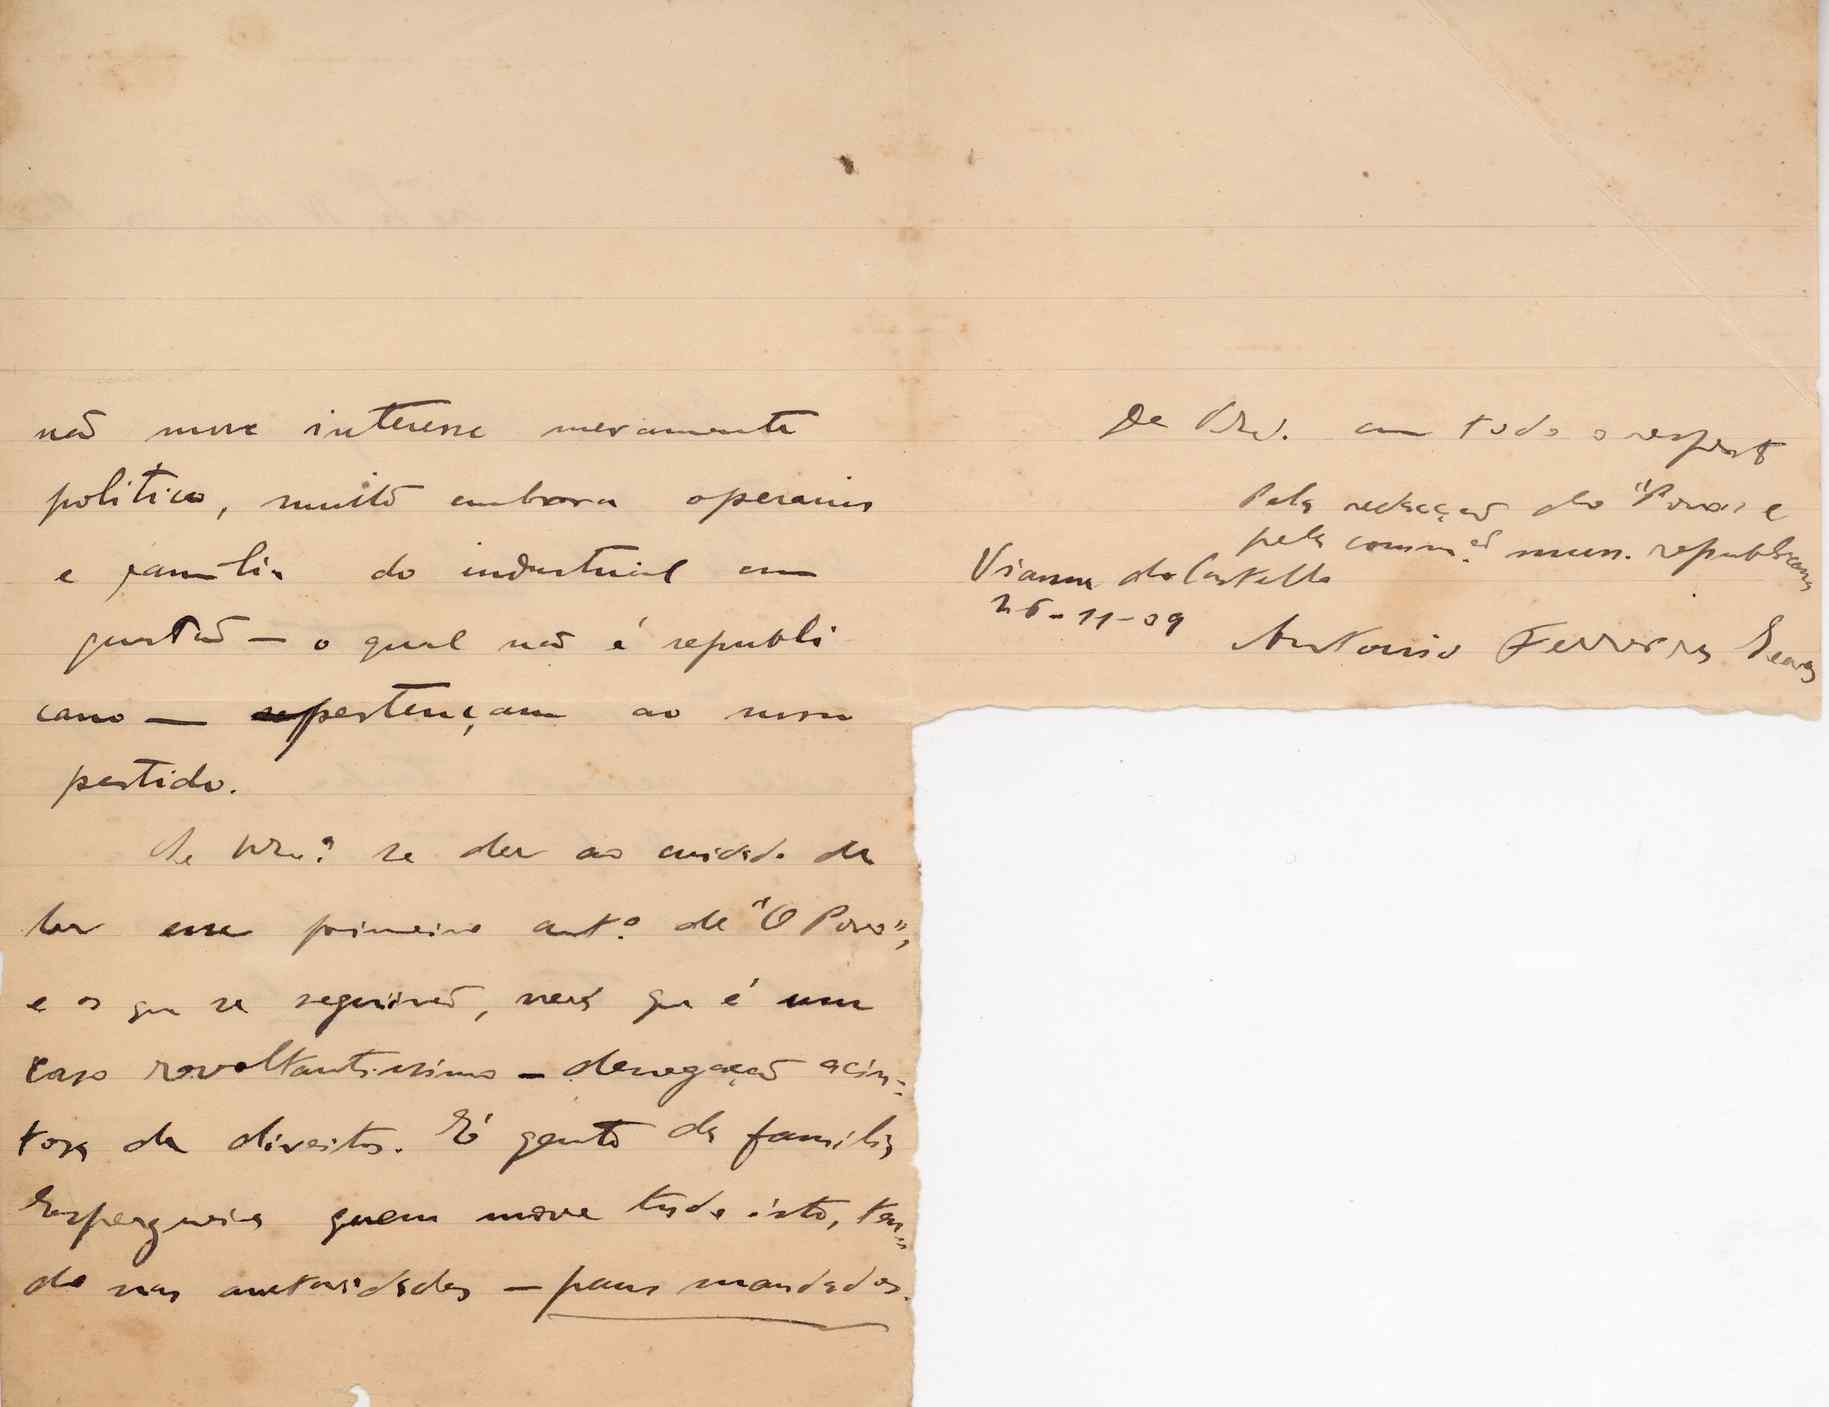 não move interesse meramente
politico, muito embora operarios
e familia do industrial em
questão — o qual não é republi
cano — pertençam ao nosso
partido.
Se V. Ex.ª se der ao cuidado de
ler esse primeiro art.º de "O Povo",
e os que se seguirão, verá que é um
caso revoltantissimo — denegação acin-
tosa de direitos. E' gente da familia
Espregueira quem move tudo isto, ten-
do nas autoridades — paus mandados.
De V. Ex. com todo o respeito
Pela redacção do "Povo" e
pela comm.ão mun. republicana
Vianna do Castello
26-11-09
Antonio Ferreira Soares